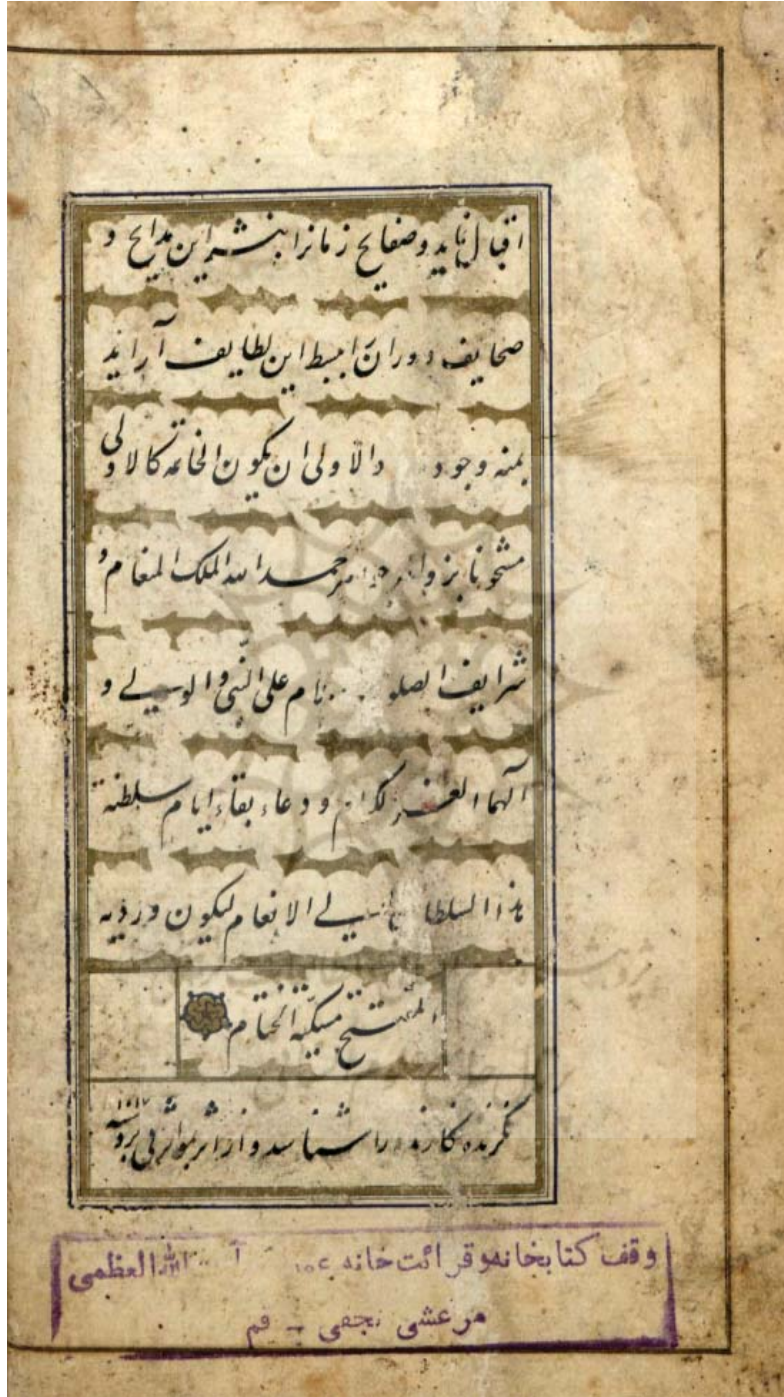 اقبال نماید و صفایح زمانرا بنشر این مدایح و
صحایف دورانرا ببسط این لطایف آراید
بمنه وجوده والاولی ان یکون الخاتمة کالاولی
مشحونا بزواهر جواهر حمد الله الملک المنعام و
شرایف الصلو علی النبی والوصی و
آلهما الغر الکرام و دعاء بقاء ایام سلطنة
هذا السلطان الانعام لیکون وردیه
المفتتح مسکیة الختام
نگارنده را شناسد و از اثر بموثر پی برد
وقف کتابخانه و قرائت خانه آیت الله العظمی
مرعشی نجفی - قم